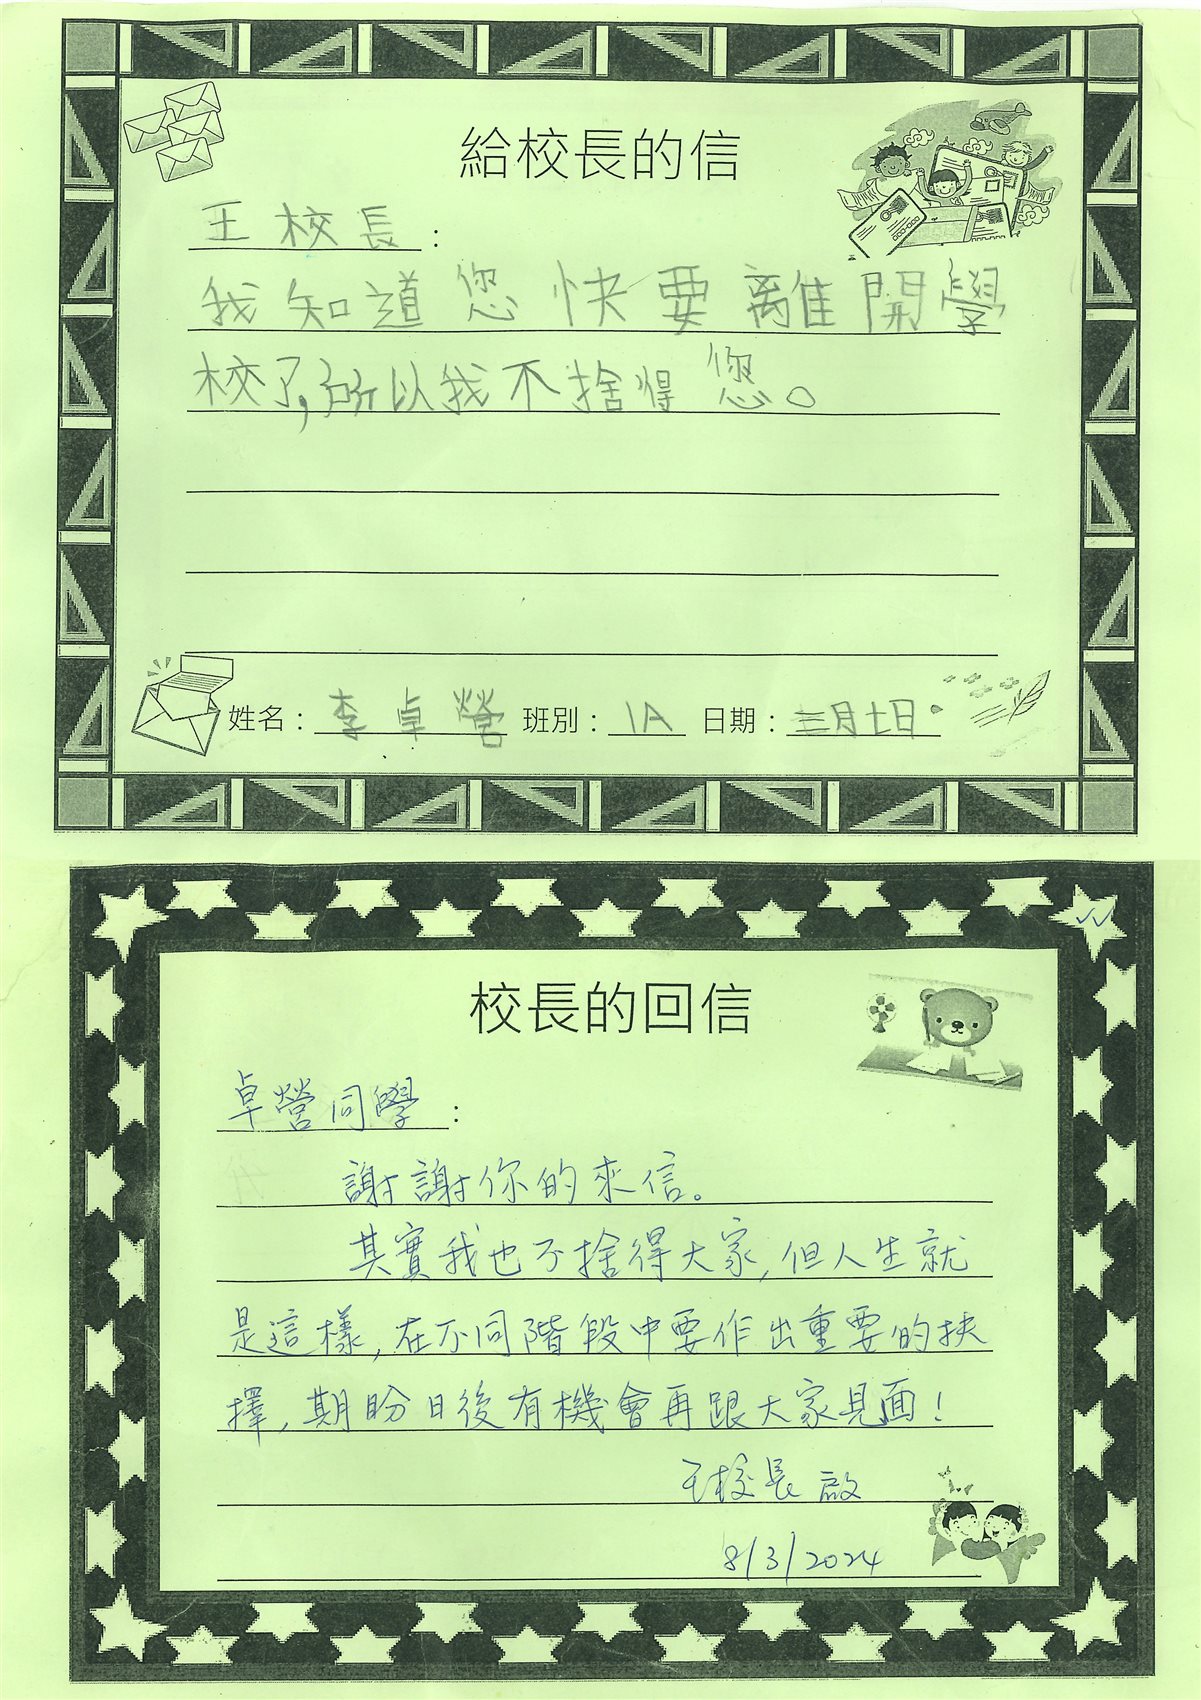 給校長的信
王校長：
我知道您快要離開學
校了,所以我不捨得您。
姓名：李卓營 班別：1A 日期：三月七日
校長的回信
卓營同學：
謝謝你的來信。
其實我也不捨得大家,但人生就
是這樣,在不同階段中要作出重要的抉
擇,期盼日後有機會再跟大家見面!
王校長 啟
8/3/2024